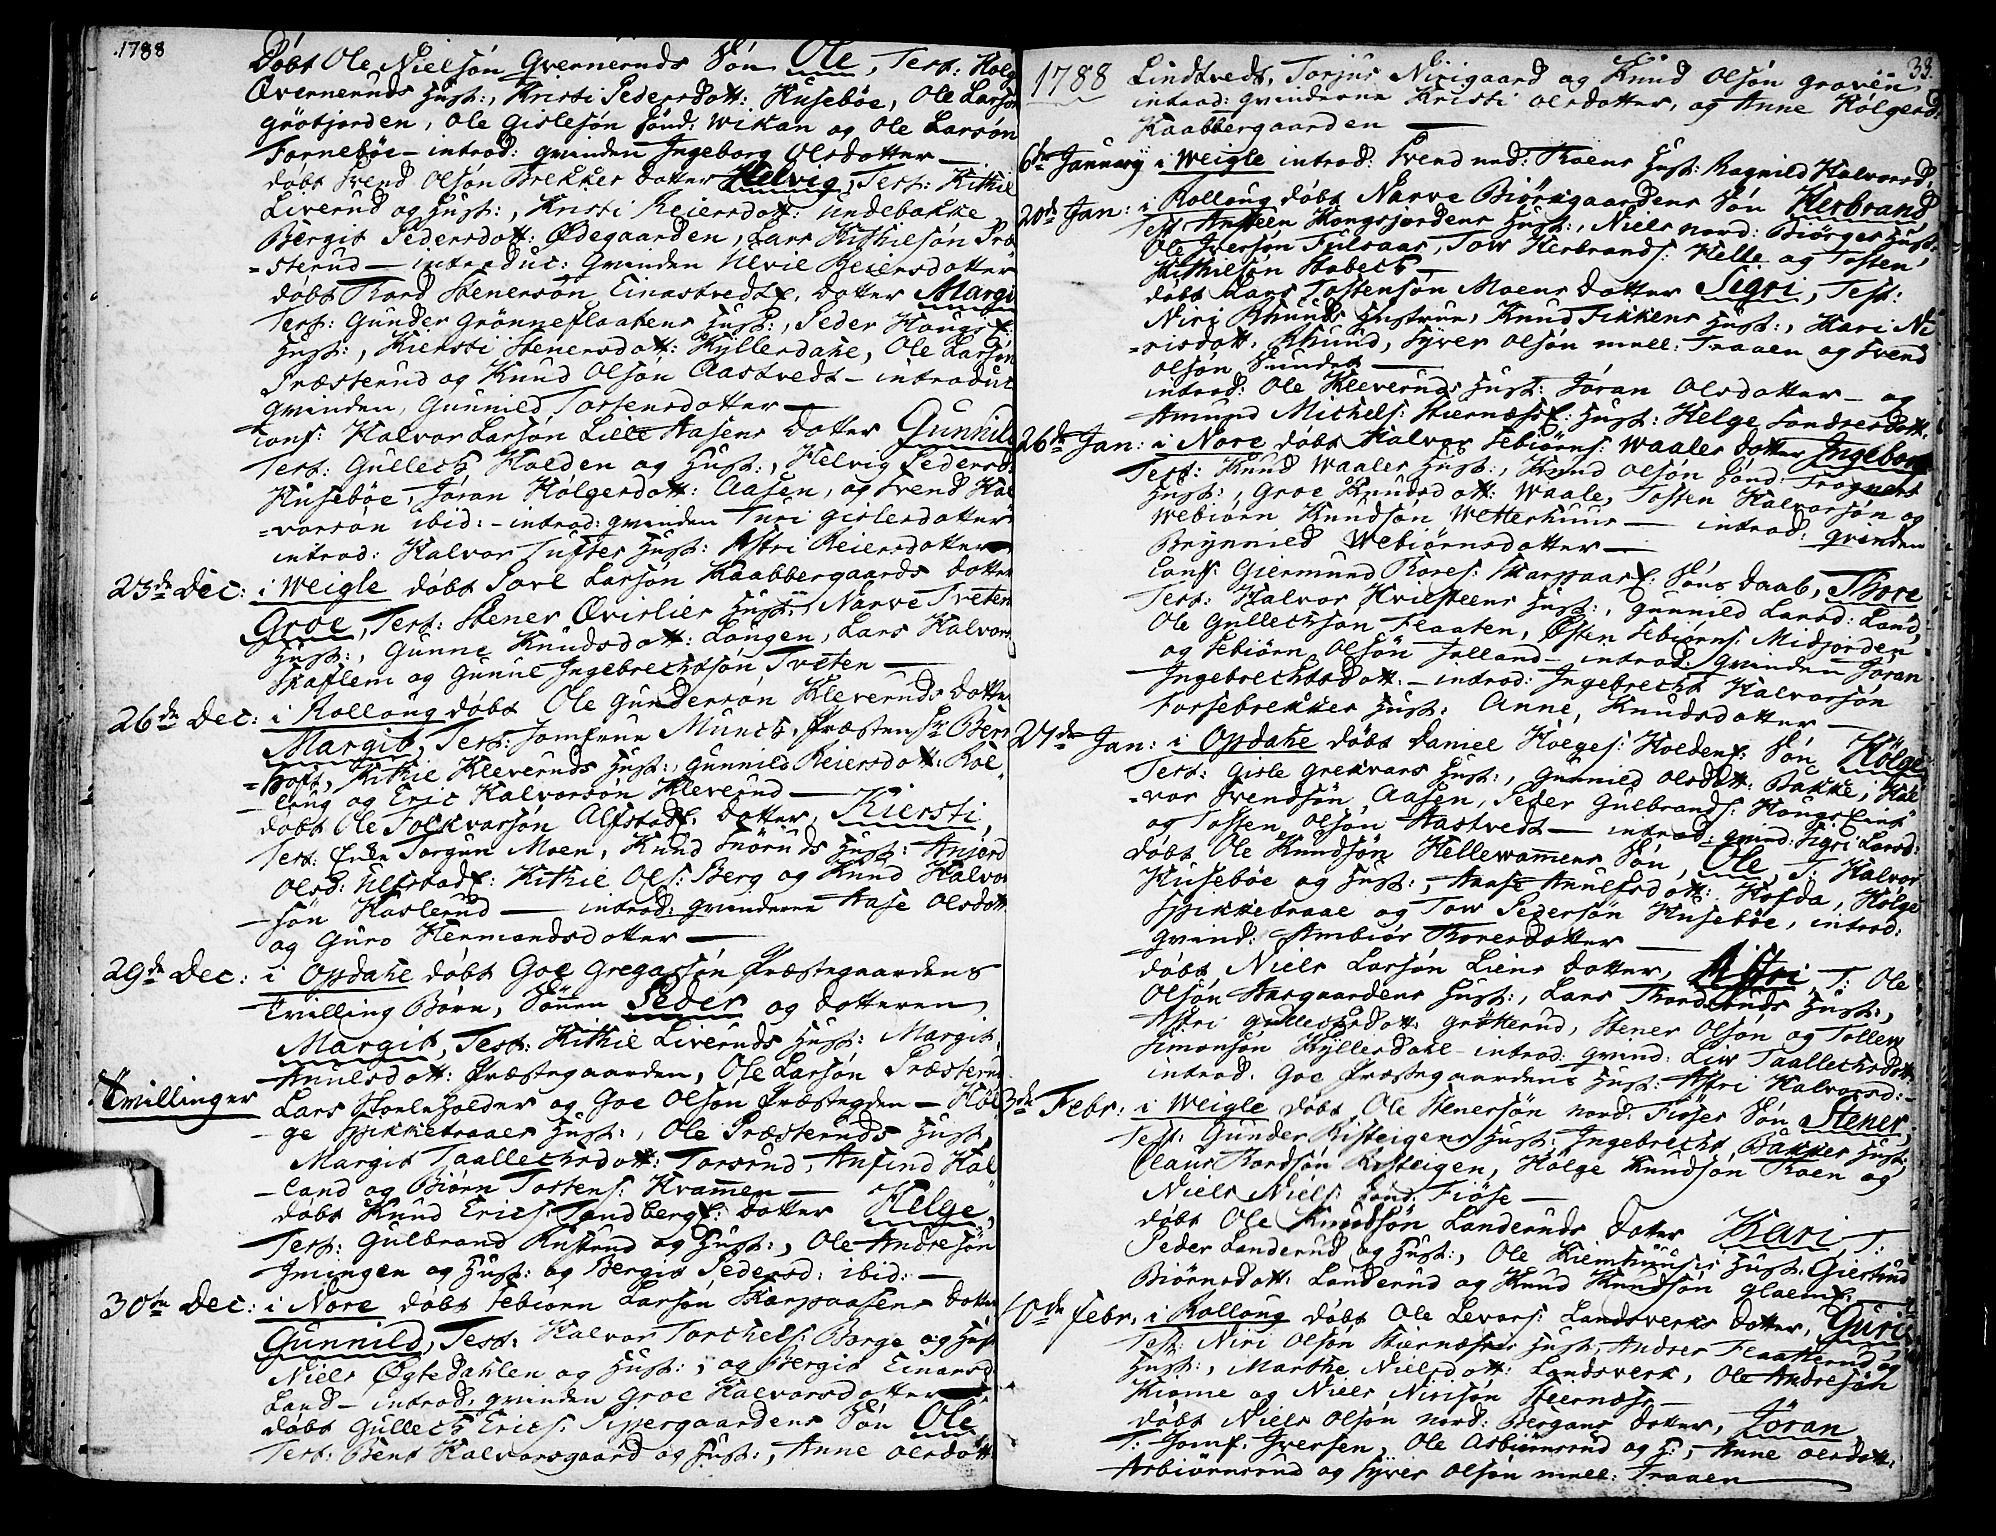 1788
Døbt Ole Nielsøn Qverneruds Søn Ole, Test: Holg
Qverneruds Hust:, Kristi Pedersdott: Husebøe, Ole Larsøn
grøtjorden, Ole Gislesøn Sönd: Wikan og Ole Larsøn
Tornebøe – introd: qvinden Ingeborg Olsdotter
døbt Svend Olsøn Brekkes dotter Helvig, Test: Kithil
Liverud og Hust:, Kristi Reiersdott: Undebakke
Bergit Pedersdott: Ødegaarden, Lars Kithilsøn Præ
=sterud – introduc: Qvinden Ulvil Reiersdotter
døbt Thord Stenersøn Einastvedts: dotter Margi
Test: Gunder Grönneflaatens Hust:, Peder Hougs:
Hust:, Kiersti Stenersdott: Kyllerdahl, Ole Larsøn
Præsterud og Knud Olsøn Aastvedt – introduc
qvinden, Gunnild Tostensdotter
conf: Halvor Larsøn Lille Aasens dotter Gunnild
Test: Gullech Holden og Hust:, Helvig Pedersd
Husebøe, Jøran Holgersdott: Aasen, og Svend Hal
=vorsøn ibid: – introd: qvinden Turi Gislesdotter
introd: Halvor Tuftes Hust: Astri Reiersdotter
23de Dec: i Weigle døbt Povl Larsøn Kaabbergaards dotter
Groe, Test: Stener Qvislies Hust:, Narve Tveten
Hust:, Gunne Knudsdott: Laugen, Lars Halvors
Skaflem og Gunul Ingebrechtsøn Tveten
26de Dec: i Rollaug døbt Ole Gundersøn Kleveruds dotter
Margit, Test: Jomfrue Munch, Præsten Hr Bern
=hoft, Kithil Kleveruds Hust:, Gunnild Reiersdott: Rol
laug og Eric Halvorsøn Kleverud
døbt Ole Folkvarsøn Alfstads: dotter, Kiersti,
Test: Torgun Moen, Knud Snöruds Hust: Anjerd
Olsd: Ulfstads: Kithil Ols: Berg og Knud Halvor
søn Haslerud – introd: qvinderne Aase Olsdott
og Guro Hermandsdotter
29de Dec: i Opdahl døbt Goe Gregarsøn Præstegaardens
Tvilling Børn, Sønnen Peder og dotteren
Margit, Test: Kithil Liveruds Hust: Margit
Anulsdott: Præstegaarden, Ole Larsøn Præsterud
Tvillinger
Lars Skoleholder og Goe Olsøn Præstegden – Høl
ge Spikketraaes Hust:, Ole Præsteruds Hust,
Margit Taallechsdott: Torsrud, Anfind Hal
land og Biørn Tostens: Kvammen
døbt Knud Erics: Sandbergs: dotter Helge,
Test: Gulbrand Rustrud og Hust:, Ole Andresøn
Jmingen og Hust: og Bergit Pedersd: ibid:
30te Dec: i Nore døbt Sebiørn Larsøn Skarpaasens dotter
Gunnild, Test: Halvor Torchels: Borge og Hust
Niels Øgtedahlen og Hust:, og Bergit Einarsd
Land – introd: qvinden Groe Halvorsdotter
døbt Gullech Erics: Severgaardens Søn Ole
Test: Bent Halvorsgaard og Hust:, Anne Olsdott
33.
1788 Lindtvedt, Torjus Nirigaard og Knud Olsøn graven
introd: qvinderne Kristi Olsdotter, og Anne Holgersd
Kaabbergaarden
6te January i Weigle introd: Svend nord: Roens Hust: Ragnild Halvorsd.
20de Jan: i Rollaug døbt Narve Biørkgaardens Søn Herbrand
Test Ansteen Kongsjordens Hust:, Niels nord: Biørges Hust:
Ole Iversøn Fulsaas, Tow Herbrands: Helle og Tosten
Kithilsøn Stabech
døbt Lars Tostensøn Moens dotter Sigri, Test:
Niri Rhuuds Hustrue, Knud Fikkens Hust:, Kari Ni
=risdott. Rhuud, Syver Olsøn mell: Traaen og Svend
Olsøn Sundet
introd: Ole Kleveruds Hust: Jøran Olsdotter – og
Amund Michels: Stiernæss: Hust: Helge Sondresdott:
26de Jan: i Nore døbt Halvor Sebiørns: Waales dotter Ingeborg
Test: Knud Waales Hust:, Knud Olsøn Sönd: Trognes
Hust:, Groe Knudsdott: Waale, Tosten Halvorsøn og
Webiørn Knudsøn Wetterhuus – introd: qvinden
Brynnild Webiørnsdotter
conf: Giermund Rores: Skarpaas: Søns daab, Thore
Test: Halvor Kviesteens Hust:, Gunnild Larsd: Land,
Ole Gullechsøn Flaaten, Østen Sebiørns: Midjorden
og Sebiørn Olsøn Juland – introd: Qvinden Jøran
Ingebrechtsdott. – introd: Ingebrecht Halvorsøn
Forsebrekkes Hust: Anne Knudsdotter
27de Jan: i Opdahl døbt Daniel Holges: Holdens: Søn Hølge
Test: Gisle Grekvars Hust:, Gunnild Olsdott: Bakke, Hal
=vor Svendsøn Aasen, Peder Gulbrands: Hougs Eiet
og Tosten Olsøn Aastvedt – introd: qvind: Sigri Larsd:
døbt Ole Knudsøn Hellewamens Søn, Ole, T: Halvor
Husebøe og Hust:, Aase Anulfsdott: Hofda, Holge
Spikketraae og Tow Pedersøn Husebøe, introd:
Qvind: Ambiør Thoresdotter
døbt Niels Larsøn Liens dotter, Astri, T: Ole
Olsøn Aasgaardens Hust:, Lars Thordsruds Hust:,
Astri Gullechsdott: Grötterud, Stener Olsøn og Tollew
Simonsøn Kyllersdahl – introd: qvind: Liw Taallechsdott:
introd. Goe Præstegaardens Hust: Astri Halvorsd:
3de Febr: i Weigle døbt Ole Stenersøn nord: Fiøses Søn Stener,
Test: Gunder Risteigens Hust: Ingebrecht Bakkes Hust:
Claus Thordsøn Risteigen, Hölge Knudsøn Roen og
Niels Niels: Sönd: Fiøse
døbt Ole Knudsøn Landeruds dotter Kari, T:
Peder Landerud og Hust:, Ole Kiemhuus Hust: Giertrud
Biørnsdott: Landerud og Knud Knudsøn Glaims:
10de Febr. i Rollaug døbt Ole Levors: Landsverks dotter, Guri
Test: Niri Olsøn Stiernæses Hust, Andres Flaatterud og
Hust:, Marthe Nielsdott: Landsverk, Ole Andresøn
Kiome og Niels Nirisøn Steernæs
døbt Niels Olsøn nord: Bergans dotter, Jøran
T: Jomf. Iversen, Ole Asbiørnsrud og H:, Anne Olsdott:
Asbiørnsrud og Syver Olsøn mell: Traaen